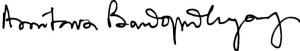 Amitava Bandopadhyay